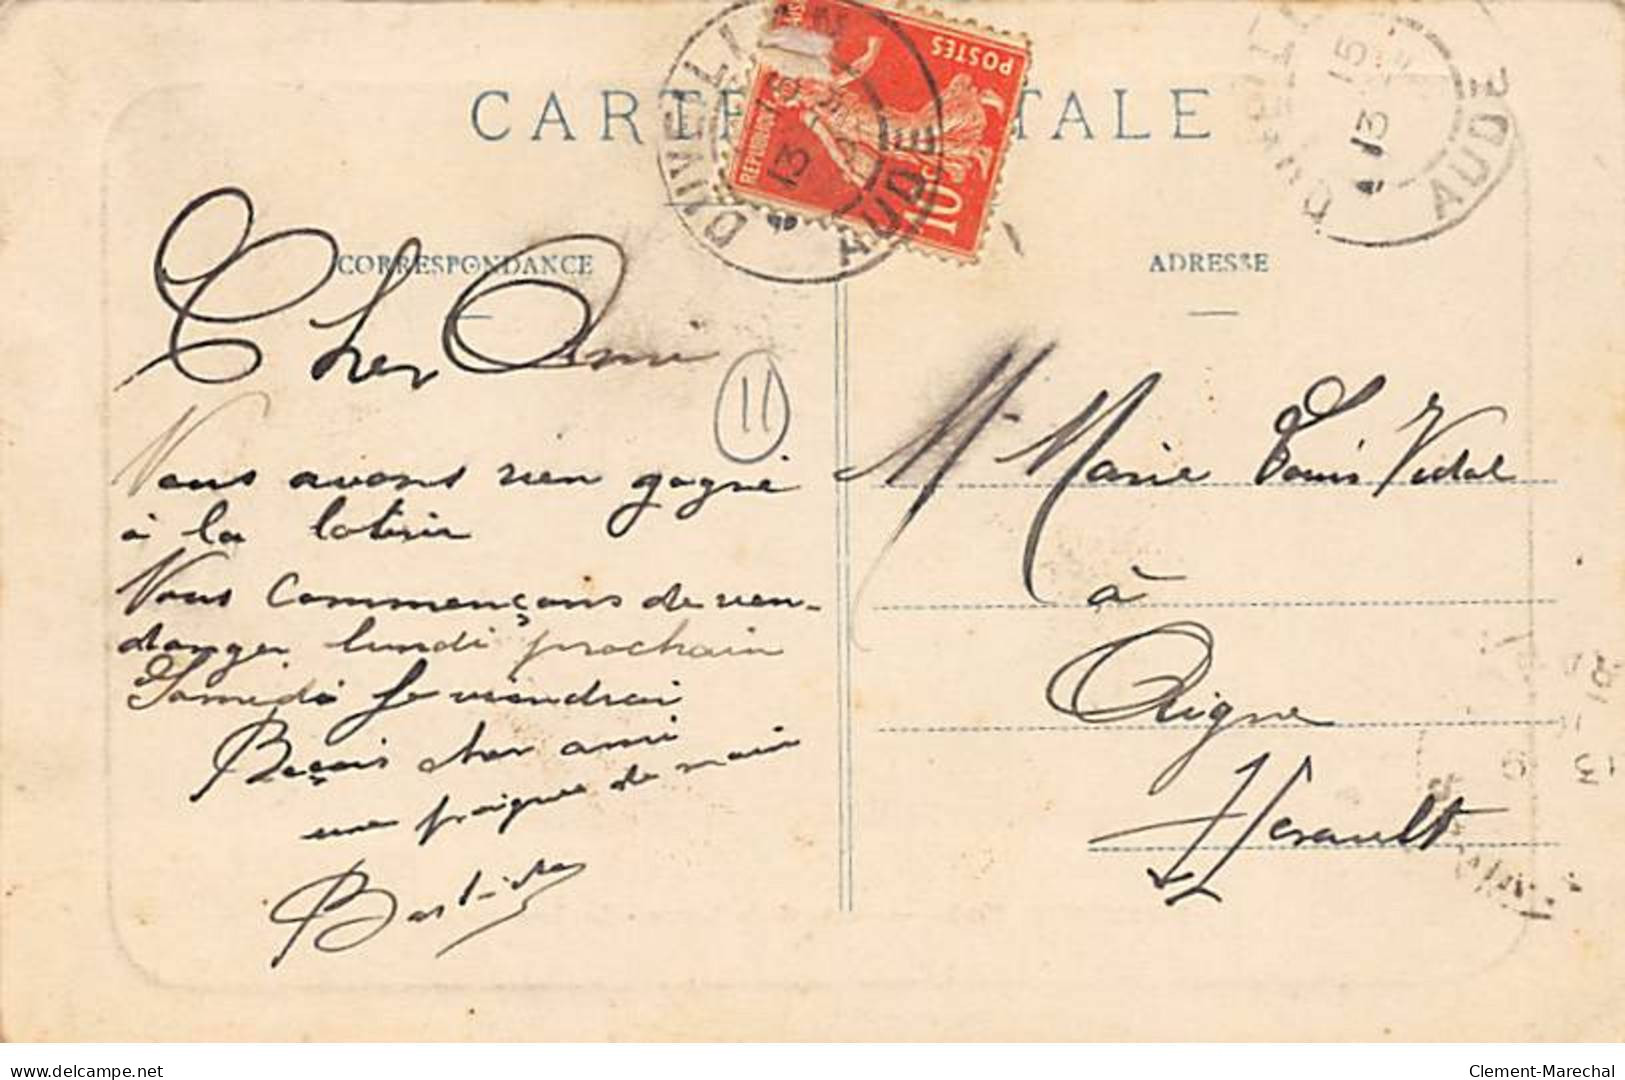 CARTE POSTALE
POSTES
10c
AUDE
13
AUDE
15
13
CORRESPONDANCE
ADRESSE
Cher Ami
11
Nous avons rien gagné
à la loterie
Nous commençons de ven-
danger lundi prochain
Samedi Je viendrai
Reçois cher ami
une poignee de main
Bastide
Mr Marie Louis Vidal
à
Aigne
Herault
delcampe.net
Clement-Marechal